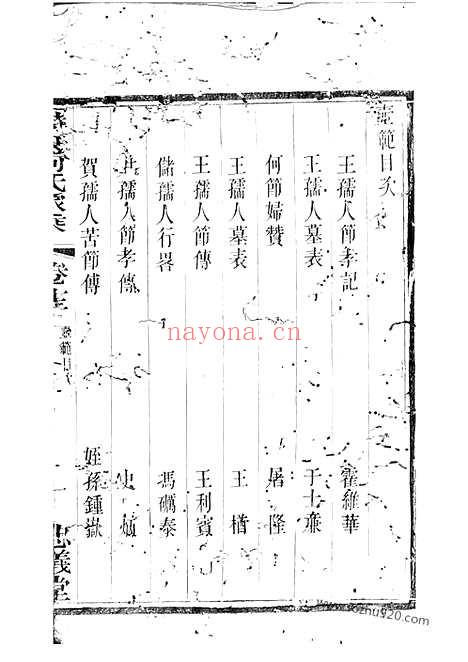 壼範目次
王孺人節孝記 霍維華
王孺人墓表 于士廉
何節婦贊 屠隆
王孺人墓表 王楷
王孺人節傳 王利賓
儲孺人行畧 馮礪泰
孺人節孝傳 史
賀孺人苦節傳 姪孫鍾嶽
氏家乘 卷 壼範目次 忠義堂
nayona.cn